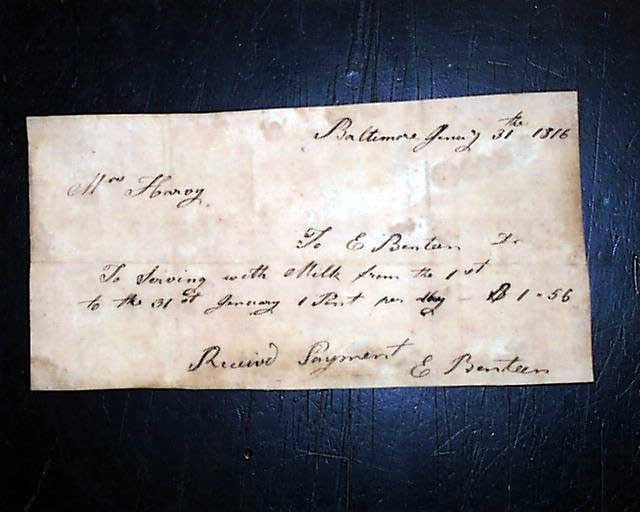 Baltimore Jenuay 31th 1816
Mrs Harvy
To E Benteen Dr
To Serving with Milk from the 1st
to the 31st Jenuary 1 Pint per day - $1-56
Received Payment E Benteen